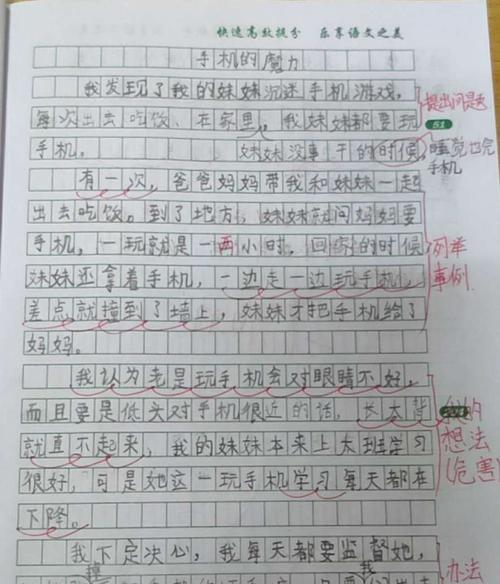 快速高效提分 乐享语文之美
手机的魔力
我发现了我的妹妹沉迷手机游戏,
提出问题
每次出去吃饭、在家里,我妹妹都要玩
51
手机。 妹妹没事干的时候,睡觉也玩
手机
有一次,爸爸妈妈带我和妹妹一起
出去吃饭。到了地方,妹妹就问妈妈要
手机,一玩就是一两小时,回家的时候
列举
妹妹还拿着手机,一边走一边玩手机,
事例
差点就撞到了墙上,妹妹才把手机给了
妈妈。
我认为老是玩手机会对眼睛不好,
而且要是低头对手机很近的话,长大背
的
就直不起来,我的妹妹本来上大班学习
想法
很好,可是她这一玩手机学习每天都在
(危害)
下降。
我下定决心,我每天都要监督她,
办法